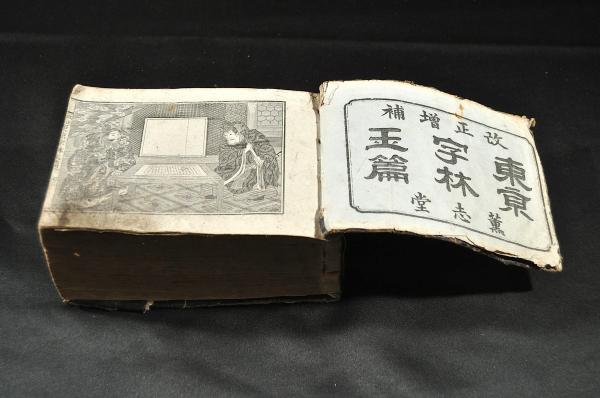 改正增補
東亰
字林
玉篇
薫志堂